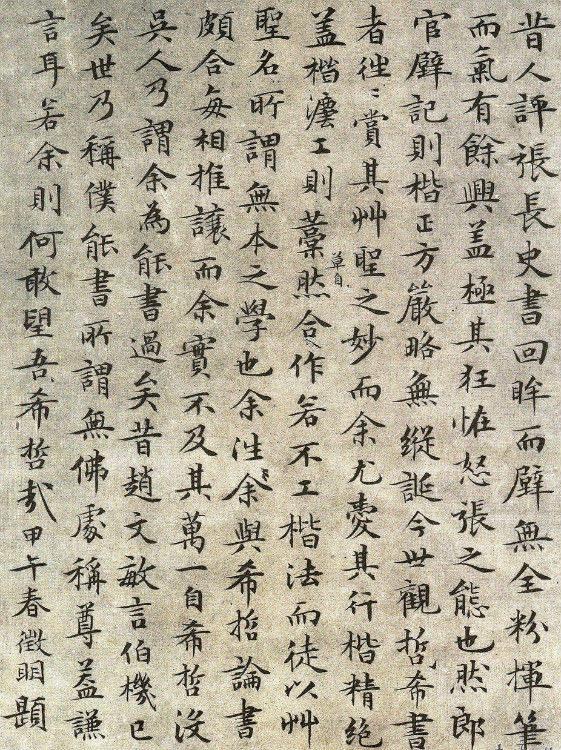 昔人評張長史書回眸而壁無全粉揮筆
而氣有餘興盖極其狂恠怒張之態也然郎
官壁記則楷正方嚴略無縱誕今世觀哲希書
者徃〻賞其艸聖之妙而余尤愛其行楷精絕
盖楷灋工則藁然合作若不工楷法而徒以艸
草自
聖名所謂無本之學也余徃余與希哲論書
頗合每相推讓而余實不及其萬一自希哲沒
吳人乃謂余為能書過矣昔趙文敏言伯機已
矣世乃稱僕能書所謂無佛處稱尊葢謙
言耳若余則何敢望吾希哲哉甲午春徵明題